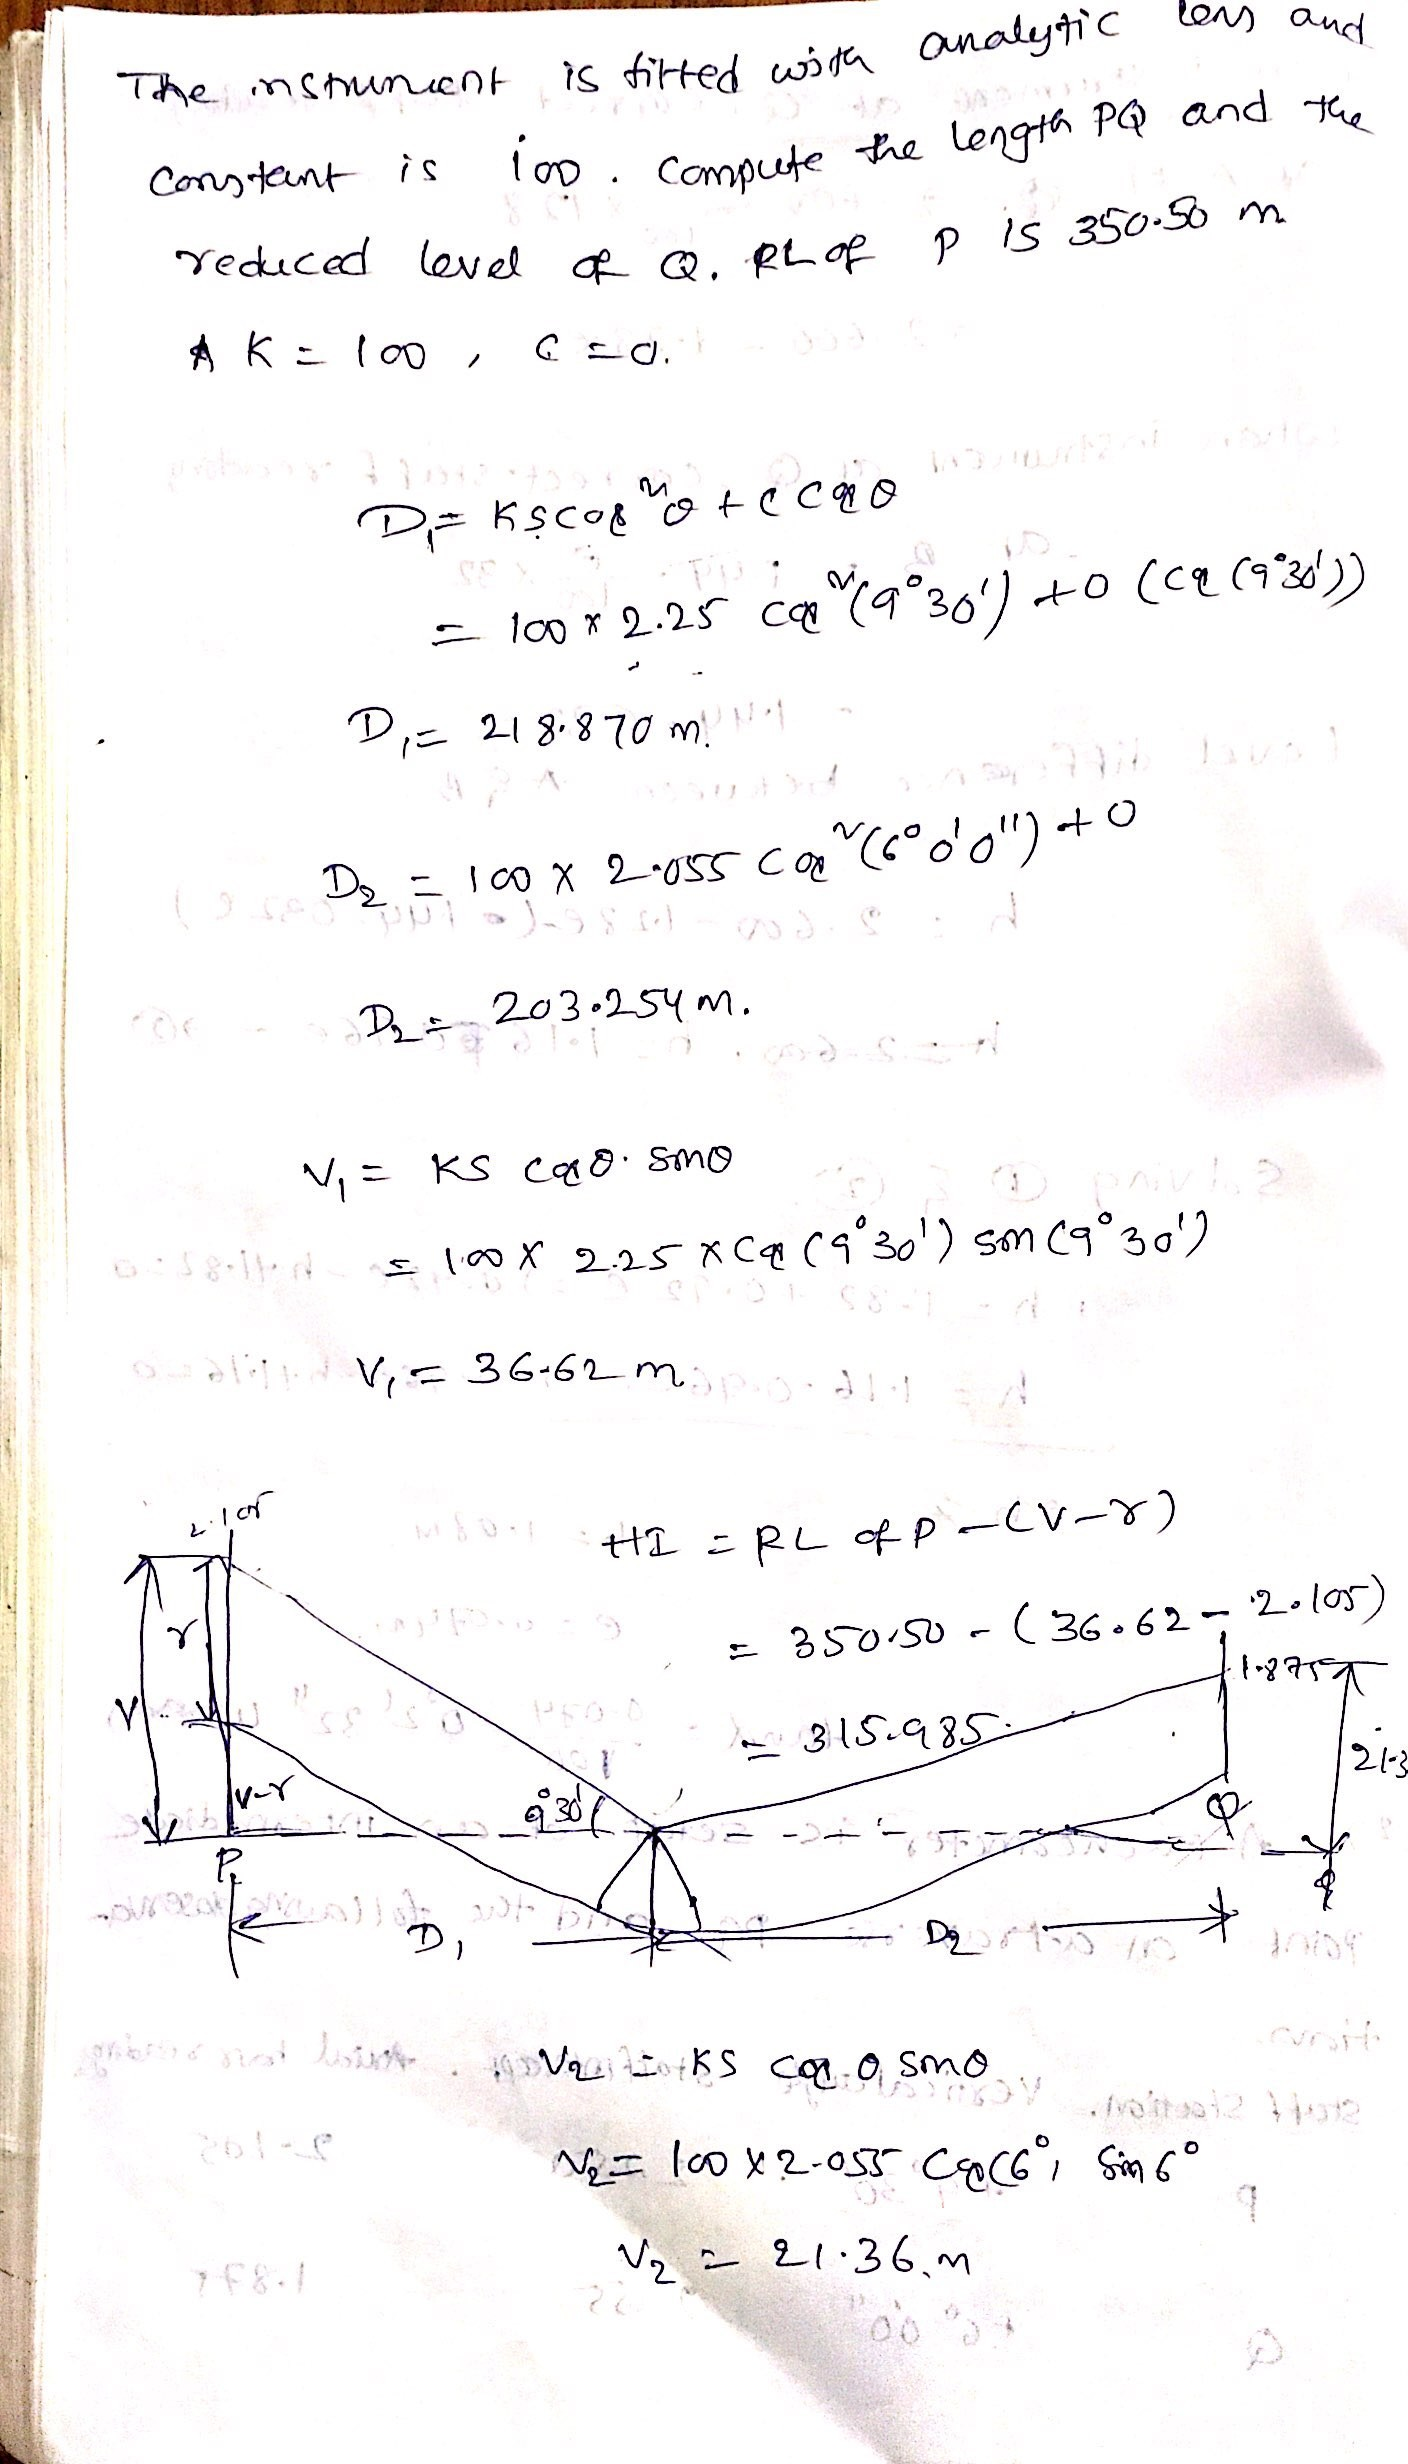 The instrument is fitted with analytic lens and
constant is 100. compute the length PQ and the
reduced level of Q. RL of P is 350.50 m
K = 100, C = 0.
D₁ = KS cos²θ + C cosθ
= 100 × 2.25 cos²(9°30') + 0 (cos(9°30'))
D₁ = 218.870 m.
D₂ = 100 × 2.055 cos²(6°0'0") + 0
D₂ = 203.254 m.
V₁ = KS cosθ. sinθ
= 100 × 2.25 × cos(9°30') sin(9°30')
V₁ = 36.62 m
2.105
HI = RL of P - (V-r)
= 350.50 - (36.62 - 2.105)
r
1.875
V
= 315.985.
21.3
V-r
9°30'
Q
P
D₁
D₂
V₂ = KS cosθ sinθ
V₂ = 100 × 2.055 cos(6°, sin 6°
V₂ = 21.36 m